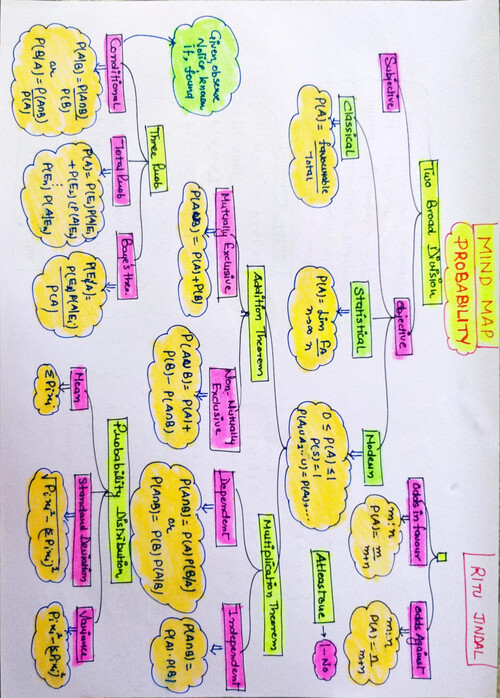 MIND MAP
PROBABILITY
RITU JINDAL
Two Broad Division
Subjective
Objective
Classical
P(A) = favourable
Total
Statistical
P(A) = Lim Fn
n→∞ n
Modern
0 ≤ P(A) ≤ 1
P(S) = 1
P(A₁∪A₂...∪) = P(A₁)+...
odds in favour
m:n
P(A) = m
m+n
odds Against
m:n
P(A) = n
m+n
Atleast one → 1-No
Addition Theorem
Mutually Exclusive
P(A∪B) = P(A)+P(B)
Non-Mutually
Exclusive
P(A∪B) = P(A)+
P(B)-P(A∩B)
Multiplication Theorem
Dependent
P(A∩B) = P(A) P(B/A)
or
P(A∩B) = P(B) P(A|B)
Independent
P(A∩B) =
P(A).P(B)
Three Prob
Conditional
Given observe
Notice known
if, found
P(A|B) = P(A∩B)
P(B)
or
P(B/A) = P(A∩B)
P(A)
Total Prob
P(A) = P(E₁)P(A|E₁)
+ P(E₂) (P(A|E₂)
P(En) P(A|En)
Baye's theo
P(E₁/A) =
P(E₁) P(A|E₁)
P(A)
Probability Distribution
Mean
ΣPixi
Standard Deviation
√Pixi² - (ΣPixi)²
Variance
Pixi² - (ΣPixi)²